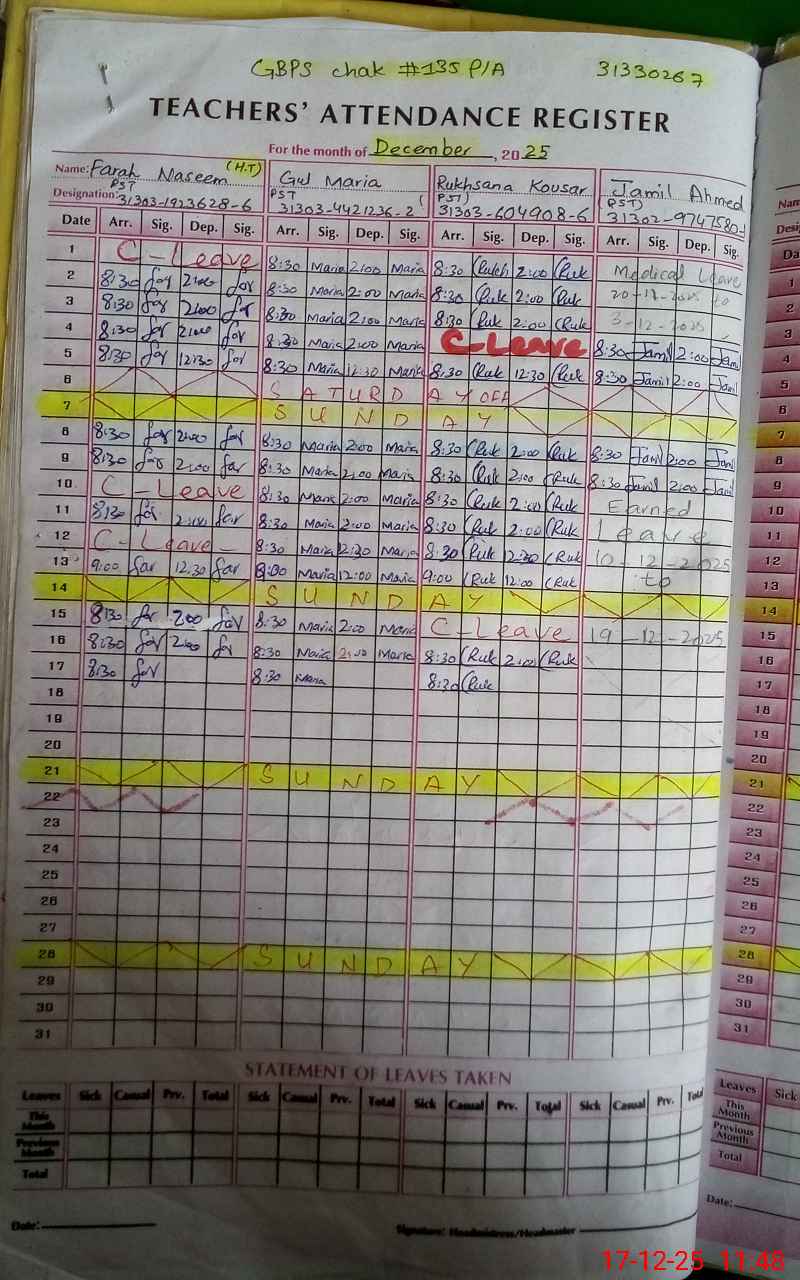 GBPS chak #135 P/A 31330267
TEACHERS' ATTENDANCE REGISTER
For the month of December, 2025
Name: Farah Naseem (H.T) Gul Maria Rukhsana Kousar Jamil Ahmed
Designation: PST PST (PST) (PST)
31303-1923628-6 31303-4421236-2 31303-604908-6 31302-9747580-1
Date Arr. Sig. Dep. Sig. Arr. Sig. Dep. Sig. Arr. Sig. Dep. Sig. Arr. Sig. Dep. Sig.
1 C-Leave 8:30 Maria 2:00 Maria 8:30 Rukh 2:00 Ruk Medical Leave
2 8:30 far 2:00 far 8:30 Maria 2:00 Maria 8:30 Ruk 2:00 Ruk 20-11-2025 to
3 8:30 far 2:00 far 8:30 Maria 2:00 Maria 8:30 Ruk 2:00 Ruk 3-12-2025
4 8:30 far 2:00 far 8:30 Maria 2:00 Maria C-Leave 8:30 Jamil 2:00 Jamil
5 8:30 far 12:30 far 8:30 Maria 12:30 Maria 8:30 Ruk 12:30 Ruk 8:30 Jamil 2:00 Jamil
6 SATURDAY OFF
7 SUNDAY
8 8:30 far 2:00 far 8:30 Maria 2:00 Maria 8:30 Ruk 2:00 Ruk 8:30 Jamil 2:00 Jamil
9 8:30 far 2:00 far 8:30 Maria 2:00 Maria 8:30 Ruk 2:00 Ruk 8:30 Jamil 2:00 Jamil
10 C-Leave 8:30 Maria 2:00 Maria 8:30 Ruk 2:00 Ruk Earned
11 8:30 far 2:00 far 8:30 Maria 2:00 Maria 8:30 Ruk 2:00 Ruk Leave
12 C-Leave- 8:30 Maria 2:30 Maria 8:30 Ruk 12:30 Ruk 10-12-2025
13 9:00 far 12:30 far 9:00 Maria 12:00 Maria 9:00 Ruk 12:00 Ruk to
14 SUNDAY
15 8:30 far 2:00 far 8:30 Maria 2:00 Maria C-Leave 19-12-2025
16 8:30 far 2:00 far 8:30 Maria 2:00 Maria 8:30 Ruk 2:00 Ruk
17 8:30 far 8:30 Maria 8:30 Ruk
18
19
20
21 SUNDAY
22
23
24
25
26
27
28 SUNDAY
29
30
31
STATEMENT OF LEAVES TAKEN
Leaves Sick Casual Prv. Total Sick Casual Prv. Total Sick Casual Prv. Total Sick Casual Prv. Total
This Month
Previous Month
Total
Date: Signature: Headmistress/Headmaster
Leaves Sick
This Month
Previous Month
Total
Date:
17-12-25 11:48